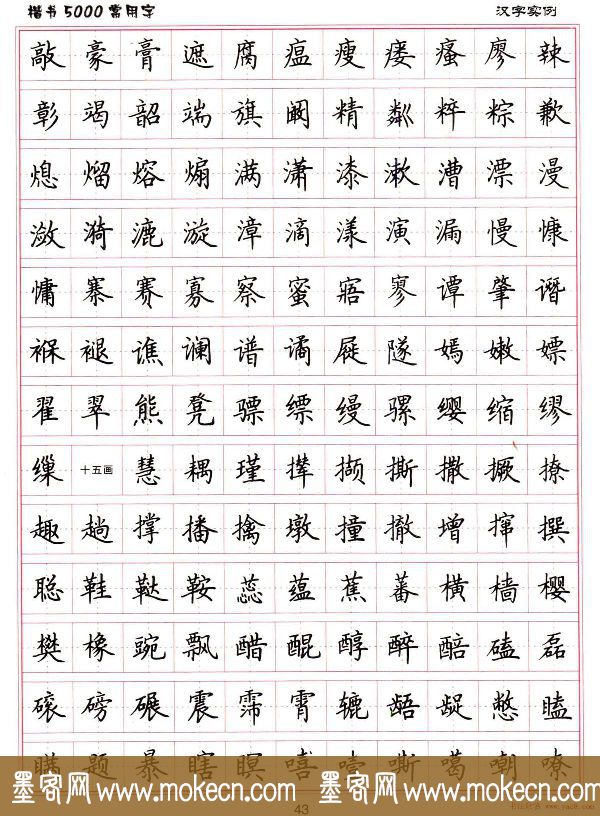 楷书5000常用字 汉字实例
敲豪膏遮腐瘟瘦瘘瘙廖辣
彰竭韶端旗阚精粼粹粽歉
熄熘熔煽满潇漆漱漕漂漫
潋漪漉漩漳滴漾演漏慢慷
慵寨赛寡察蜜寤寥谭肇谮
褓褪谯谰谱谲屣隧嫣嫩嫖
翟翠熊凳骠缥缦骡缨缩缪
缫十五画慧耦瑾撵撷撕撒撅撩
趣趟撑播擒墩撞撤增撺撰
聪鞋鞑鞍蕊蕴蕉蕃横樯樱
樊橡豌飘醋醌醇醉醅磕磊
磙磅碾震霈霄辘龉龊憋瞌
瞒题暴瞎瞑嘻噎嘶噶嘲嘹
墨客网www.mokecn.com墨客网www.mokecn.com
43